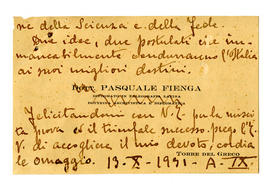 ne della Scienza e della Fede.
Due idee, due postulati che im-
mancabilmente condurranno l'Italia
ai suoi migliori destini.
PASQUALE FIENGA
TORRE DEL GRECO
Felicitandomi con V. E. per la riusci-
ta prova ed il trionfale successo, prego l'E.
V. di accogliere il mio devoto, cordia
le omaggio. 13-X-1931-A-IX.